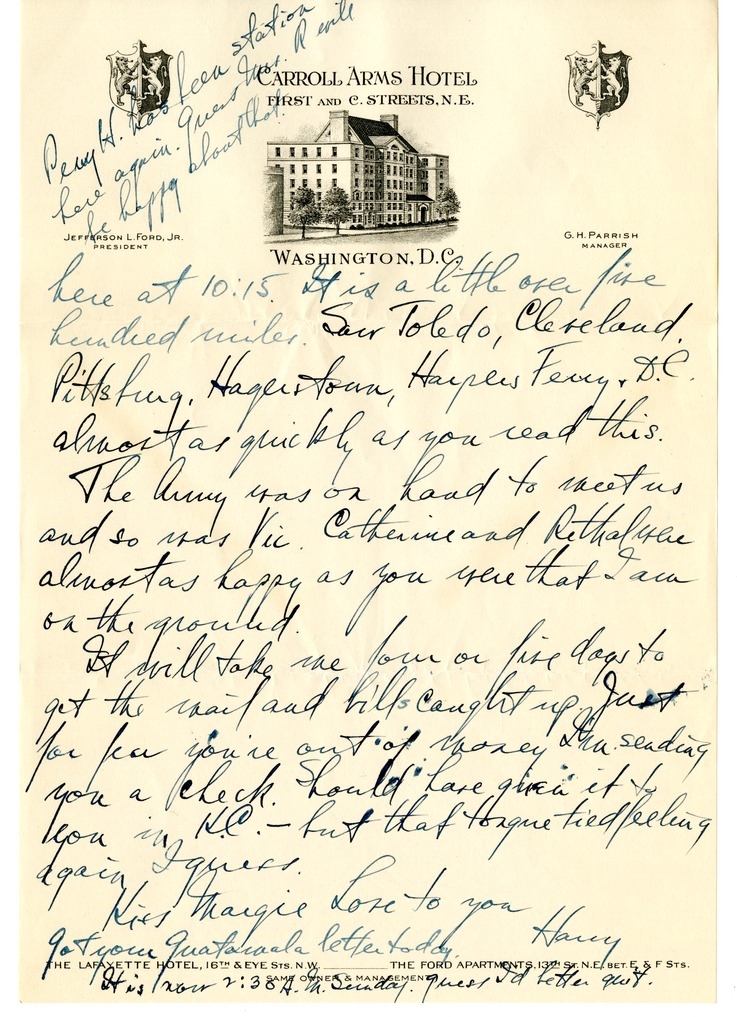 Perry H. has been station
here again. Guess Mrs. R will
be happy about that.
CARROLL ARMS HOTEL
FIRST AND C. STREETS, N.E.
JEFFERSON L. FORD, JR.
PRESIDENT
G. H. PARRISH
MANAGER
WASHINGTON, D.C.
here at 10:15. It is a little over five
hundred miles. Saw Toledo, Cleveland,
Pittsburg, Hagerstown, Harpers Ferry, D.C.
almost as quickly as you read this.
The Army was on hand to meet us
and so was Vic. Catherine and Rethal were
almost as happy as you were that I am
on the ground.
It will take me four or five days to
get the mail and bills caught up. Just
for fear you're out of money I'm sending
you a check. Should have given it to
you in K.C. – but that tongue tied feeling
again I guess.
Kiss Margie Love to you
Harry
Got your Guatamala letter today.
THE LAFAYETTE HOTEL, 16TH & EYE STS. N.W. THE FORD APARTMENTS, 13TH ST. N.E. BET. E & F STS.
SAME OWNER & MANAGEMENT
It is now 2:38 A.M. Sunday. Guess I'd better quit.